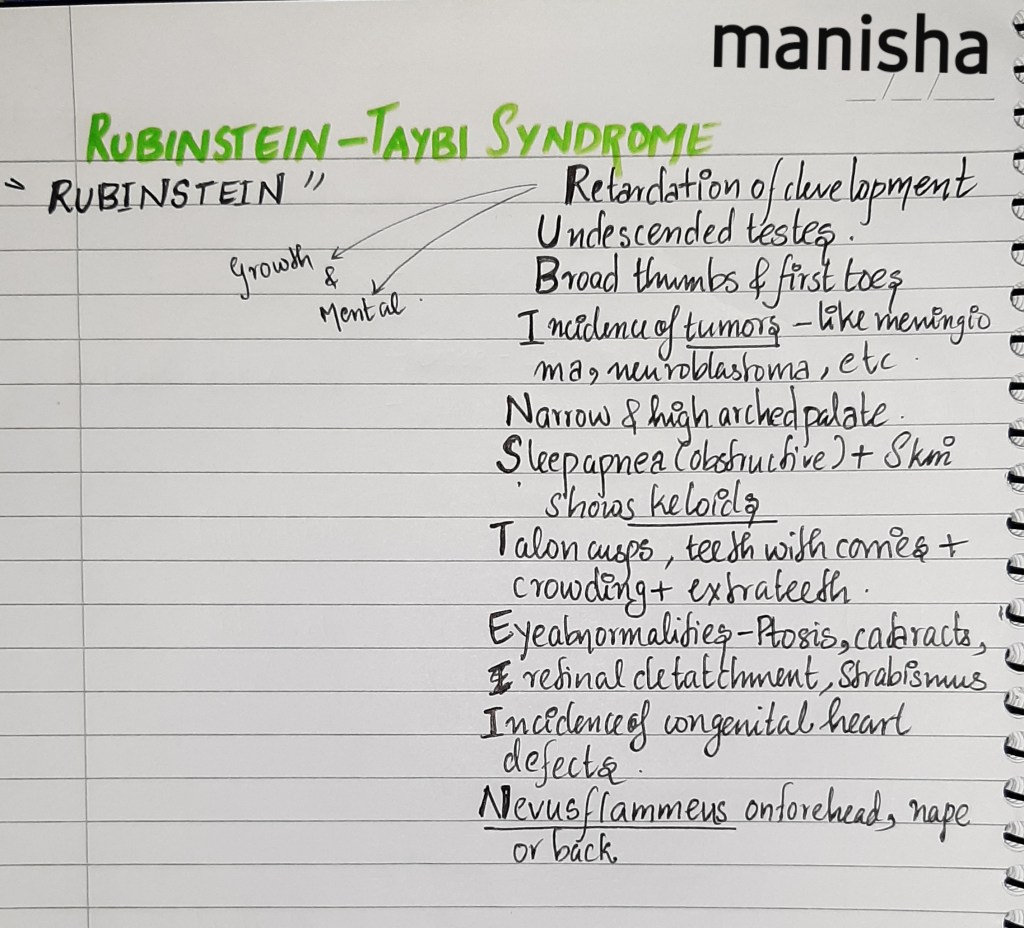 manisha
RUBINSTEIN-TAYBI SYNDROME
" RUBINSTEIN "
Retardation of development
Growth
&
Mental.
Undescended testes.
Broad thumbs & first toes
Incidence of tumors - like meningio
ma, neuroblastoma, etc.
Narrow & high arched palate.
Sleep apnea (obstructive) + Skin
shows keloids
Talon cusps, teeth with caries +
crowding + extra teeth.
Eye abnormalities - Ptosis, cataracts,
retinal detatchment, Strabismus
Incidence of congenital heart
defects.
Nevus flammeus on forehead, nape
or back